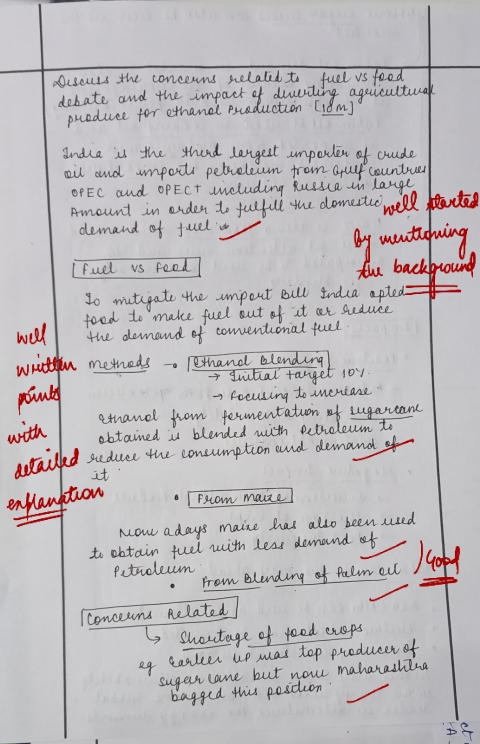 Discuss the concerns related to fuel vs food
debate and the impact of diverting agricultural
produce for ethanol Production [10M]
India is the third largest importer of crude
oil and imports petroleum from Gulf Countries
OPEC and OPEC+ including Russia in large
Amount in order to fulfill the domestic
demand of fuel
well started
by mentioning
the background
Fuel vs Food
To mitigate the import Bill India opted
food to make fuel out of it or reduce
the demand of conventional fuel.
well
written
points
with
detailed
explanation
Methods → Ethanol Blending
→ Initial target 10%
→ Focusing to increase
Ethanol from fermentation of sugarcane
obtained is blended with Petroleum to
reduce the consumption and demand of
it
• From Maize
Now a days maize has also been used
to obtain fuel with less demand of
Petroleum
• From Blending of Palm oil
Good
Concerns Related
↳ Shortage of food crops
eg Earlier UP was top producer of
sugarcane but now Maharashtra
bagged this position.